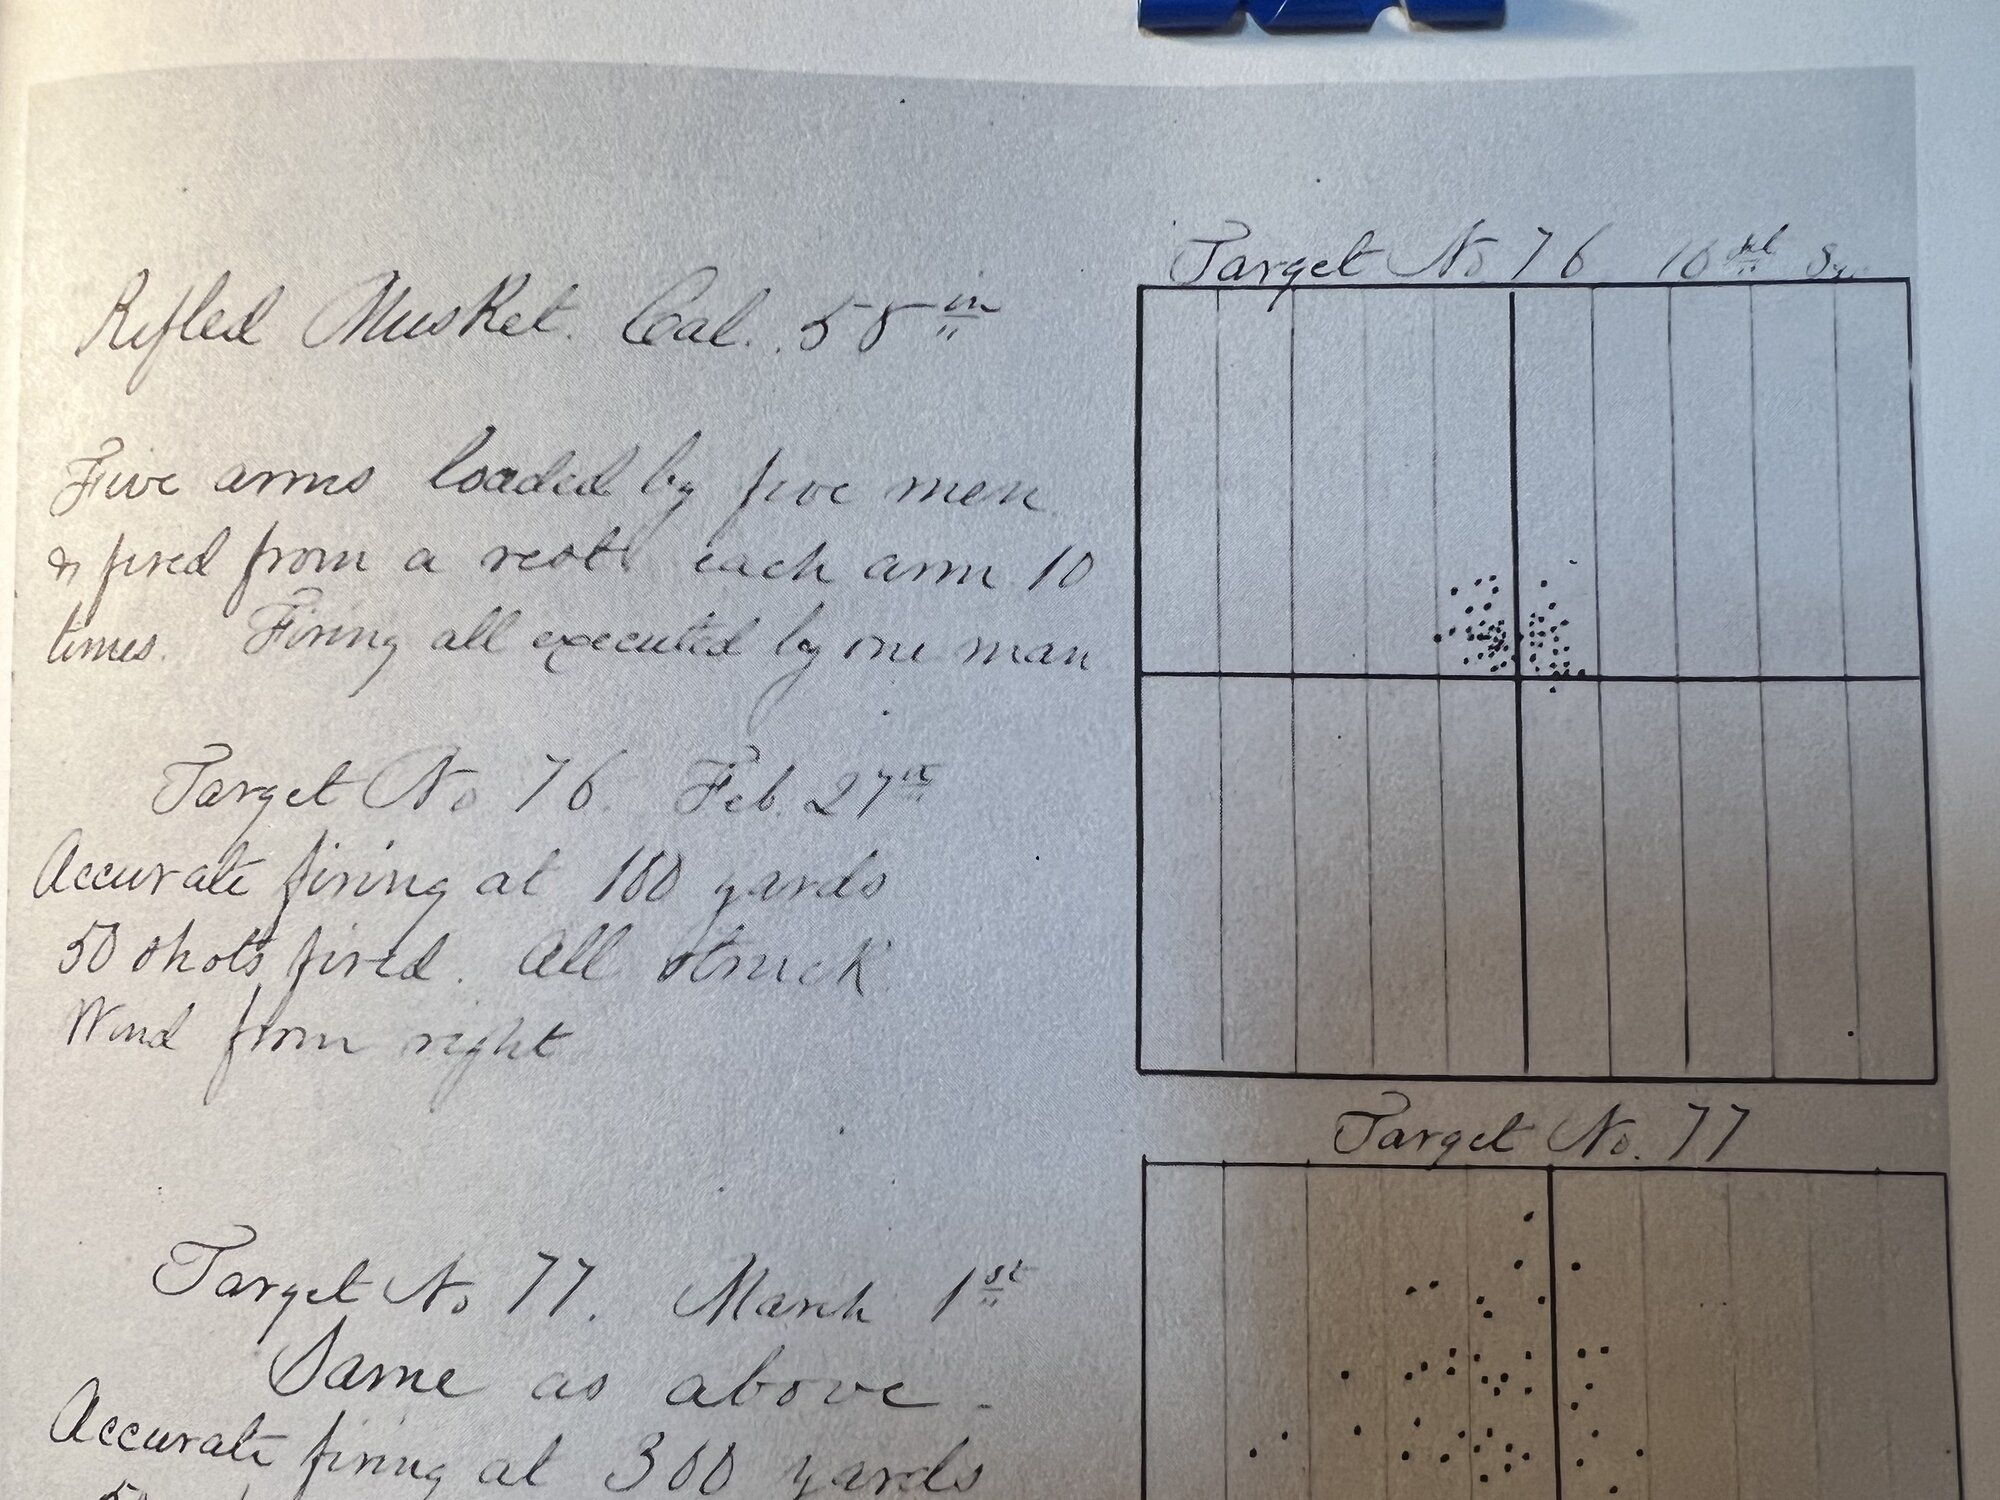 Rifled Musket. Cal. .58 in
Five arms loaded by five men
& fired from a rest each arm 10
times. Firing all executed by one man
Target No 76. Feb. 27th
Accurate firing at 100 yards
50 shots fired. All struck
Wind from right
Target No 77. March 1st
Same as above.
Accurate firing at 300 yards
Target No 76 10
Target No. 77